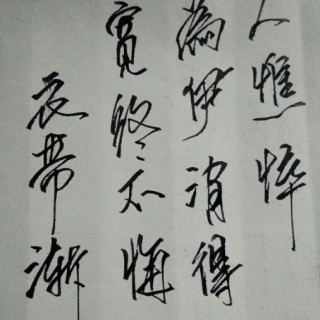 衣帶漸
寬終不悔
為伊消得
人憔悴